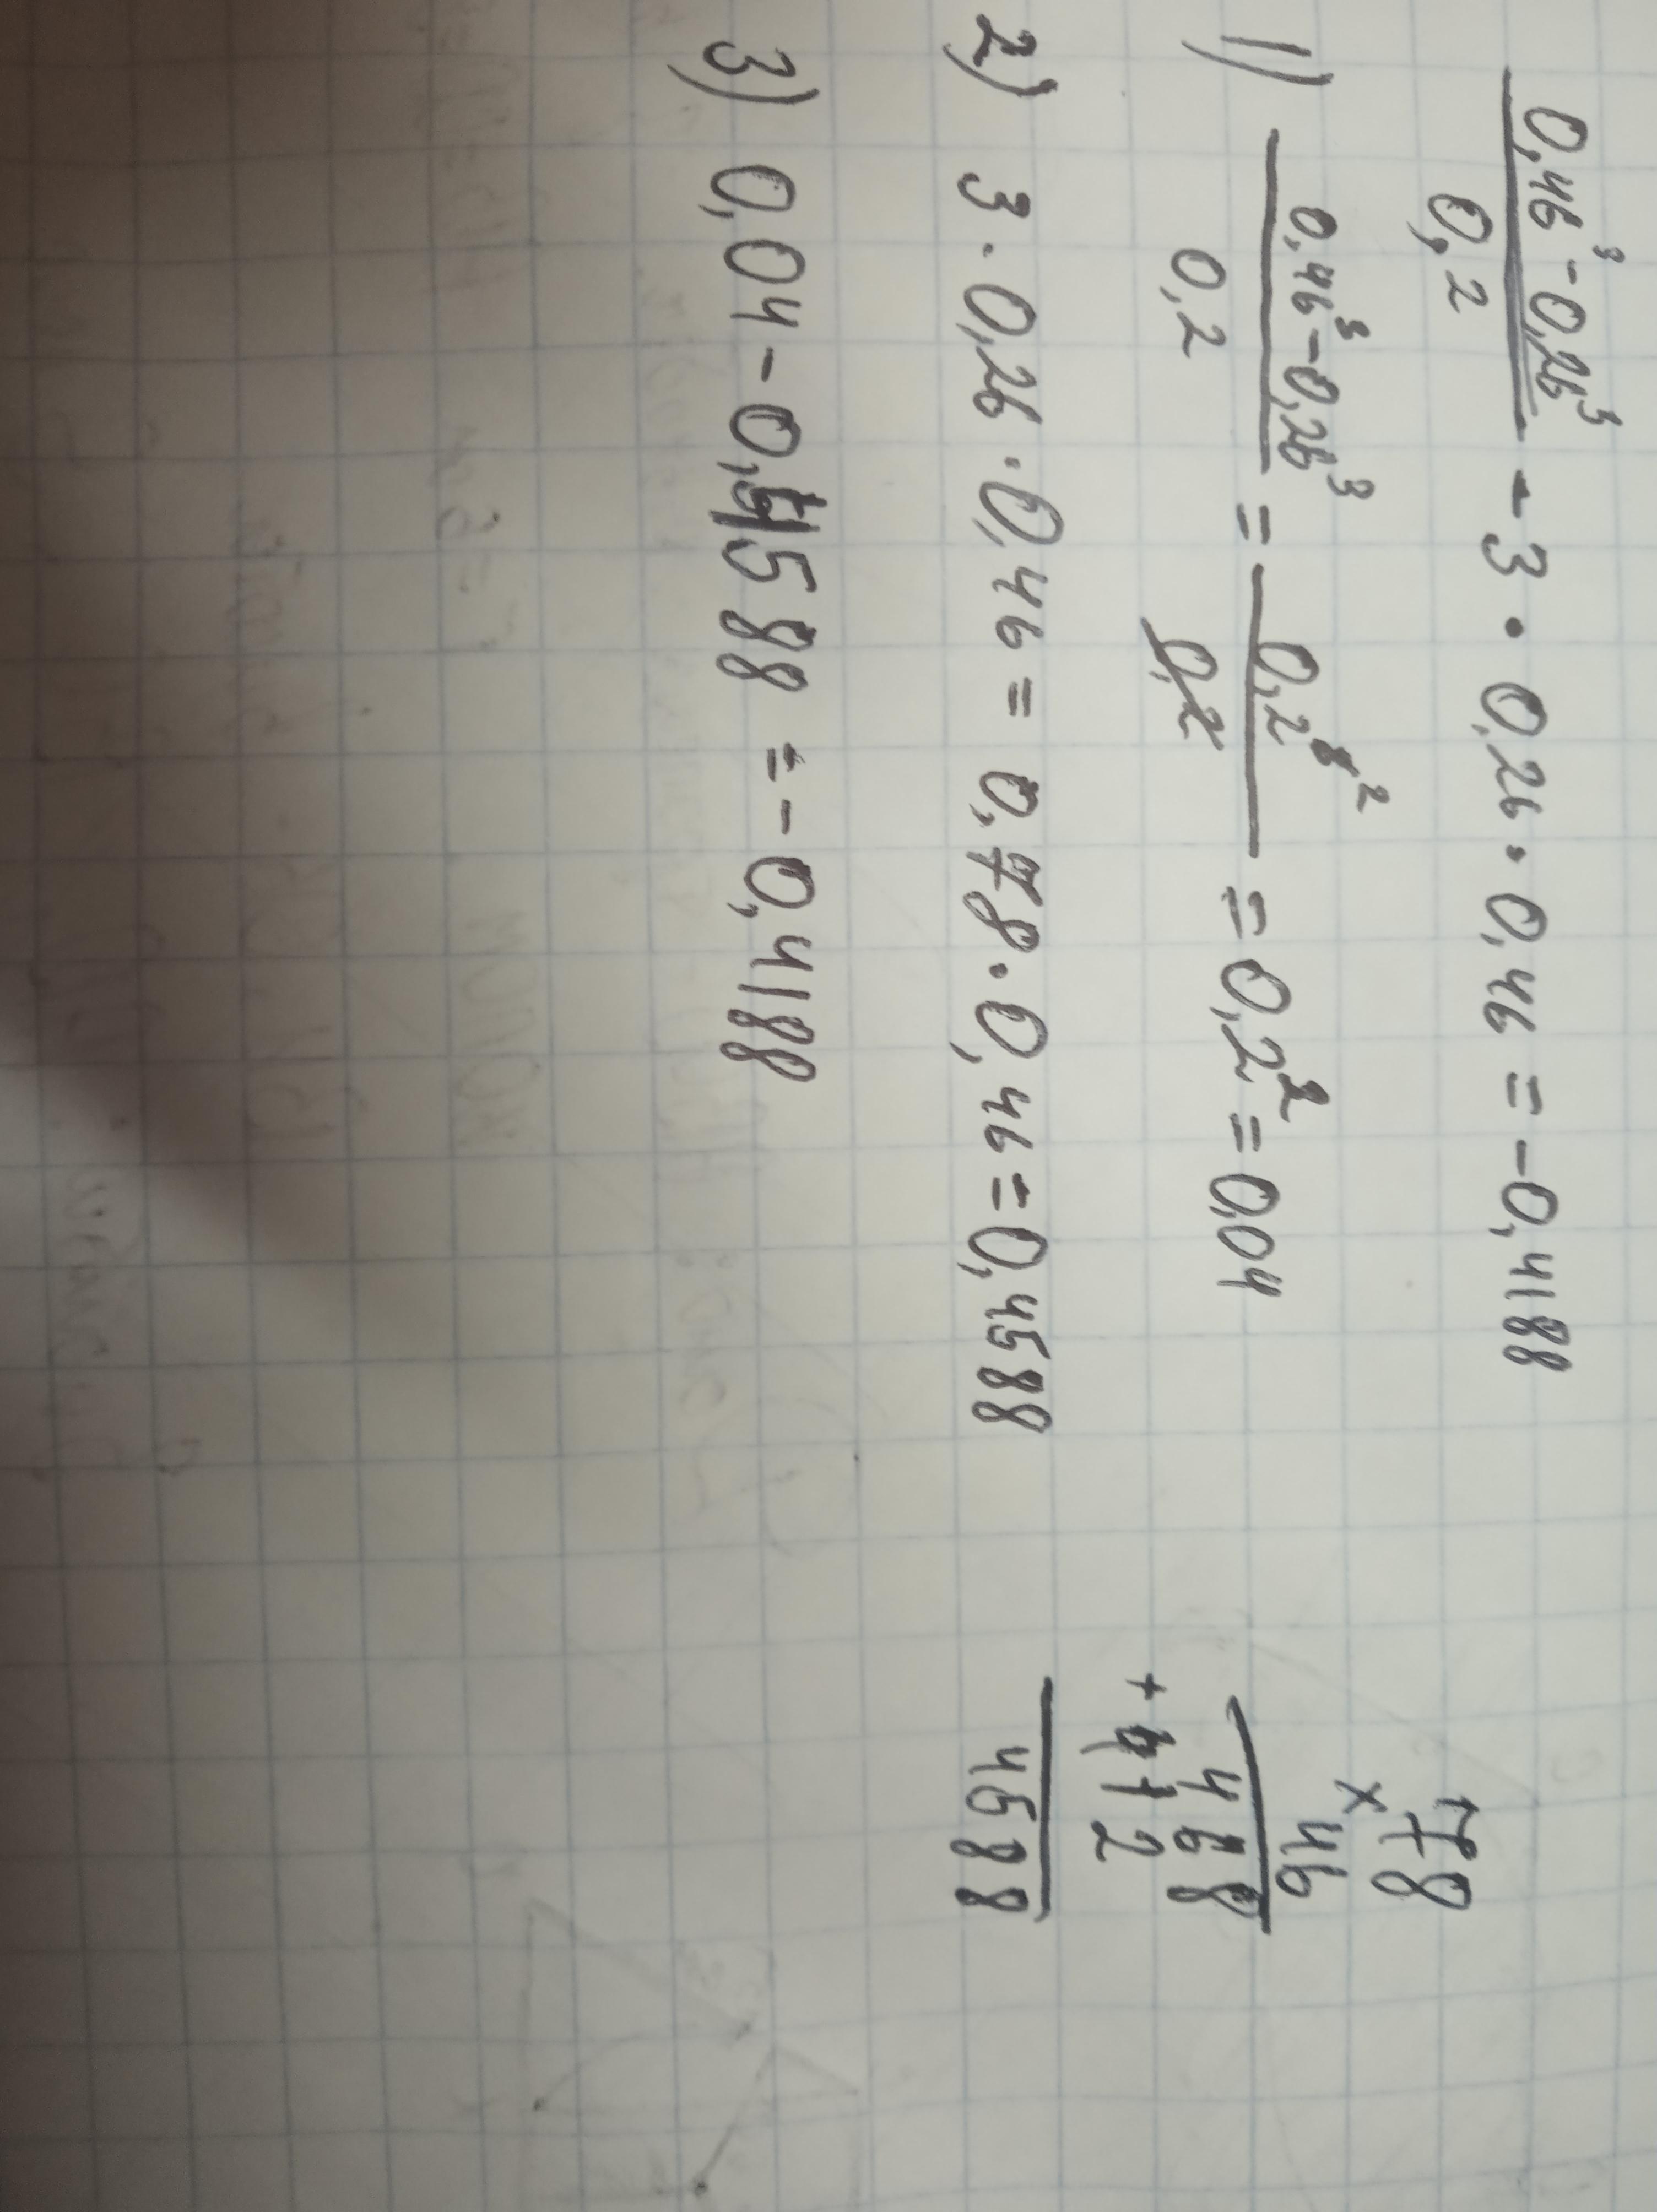 0,46³ - 0,26³
0,2
- 3 · 0,26 · 0,46 = -0,4188
1) 0,46³ - 0,26³
0,2
= 0,2² / 0,2 = 0,2² = 0,04
2) 3 · 0,26 · 0,46 = 0,78 · 0,46 = 0,4588
3) 0,04 - 0,4588 = -0,4188
78
× 46
468
+ 412
4588